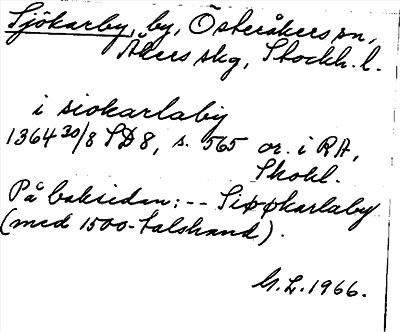 Sjökarby, by, Österåkers sn,
Åkers skg, Stockh. l.
i siokarlaby
1364 30/8 SD 8, s. 565 or. i RA,
Skokl.
På baksidan: -- Siøøkarlaby
(med 1500-talshand).
G. L. 1966.